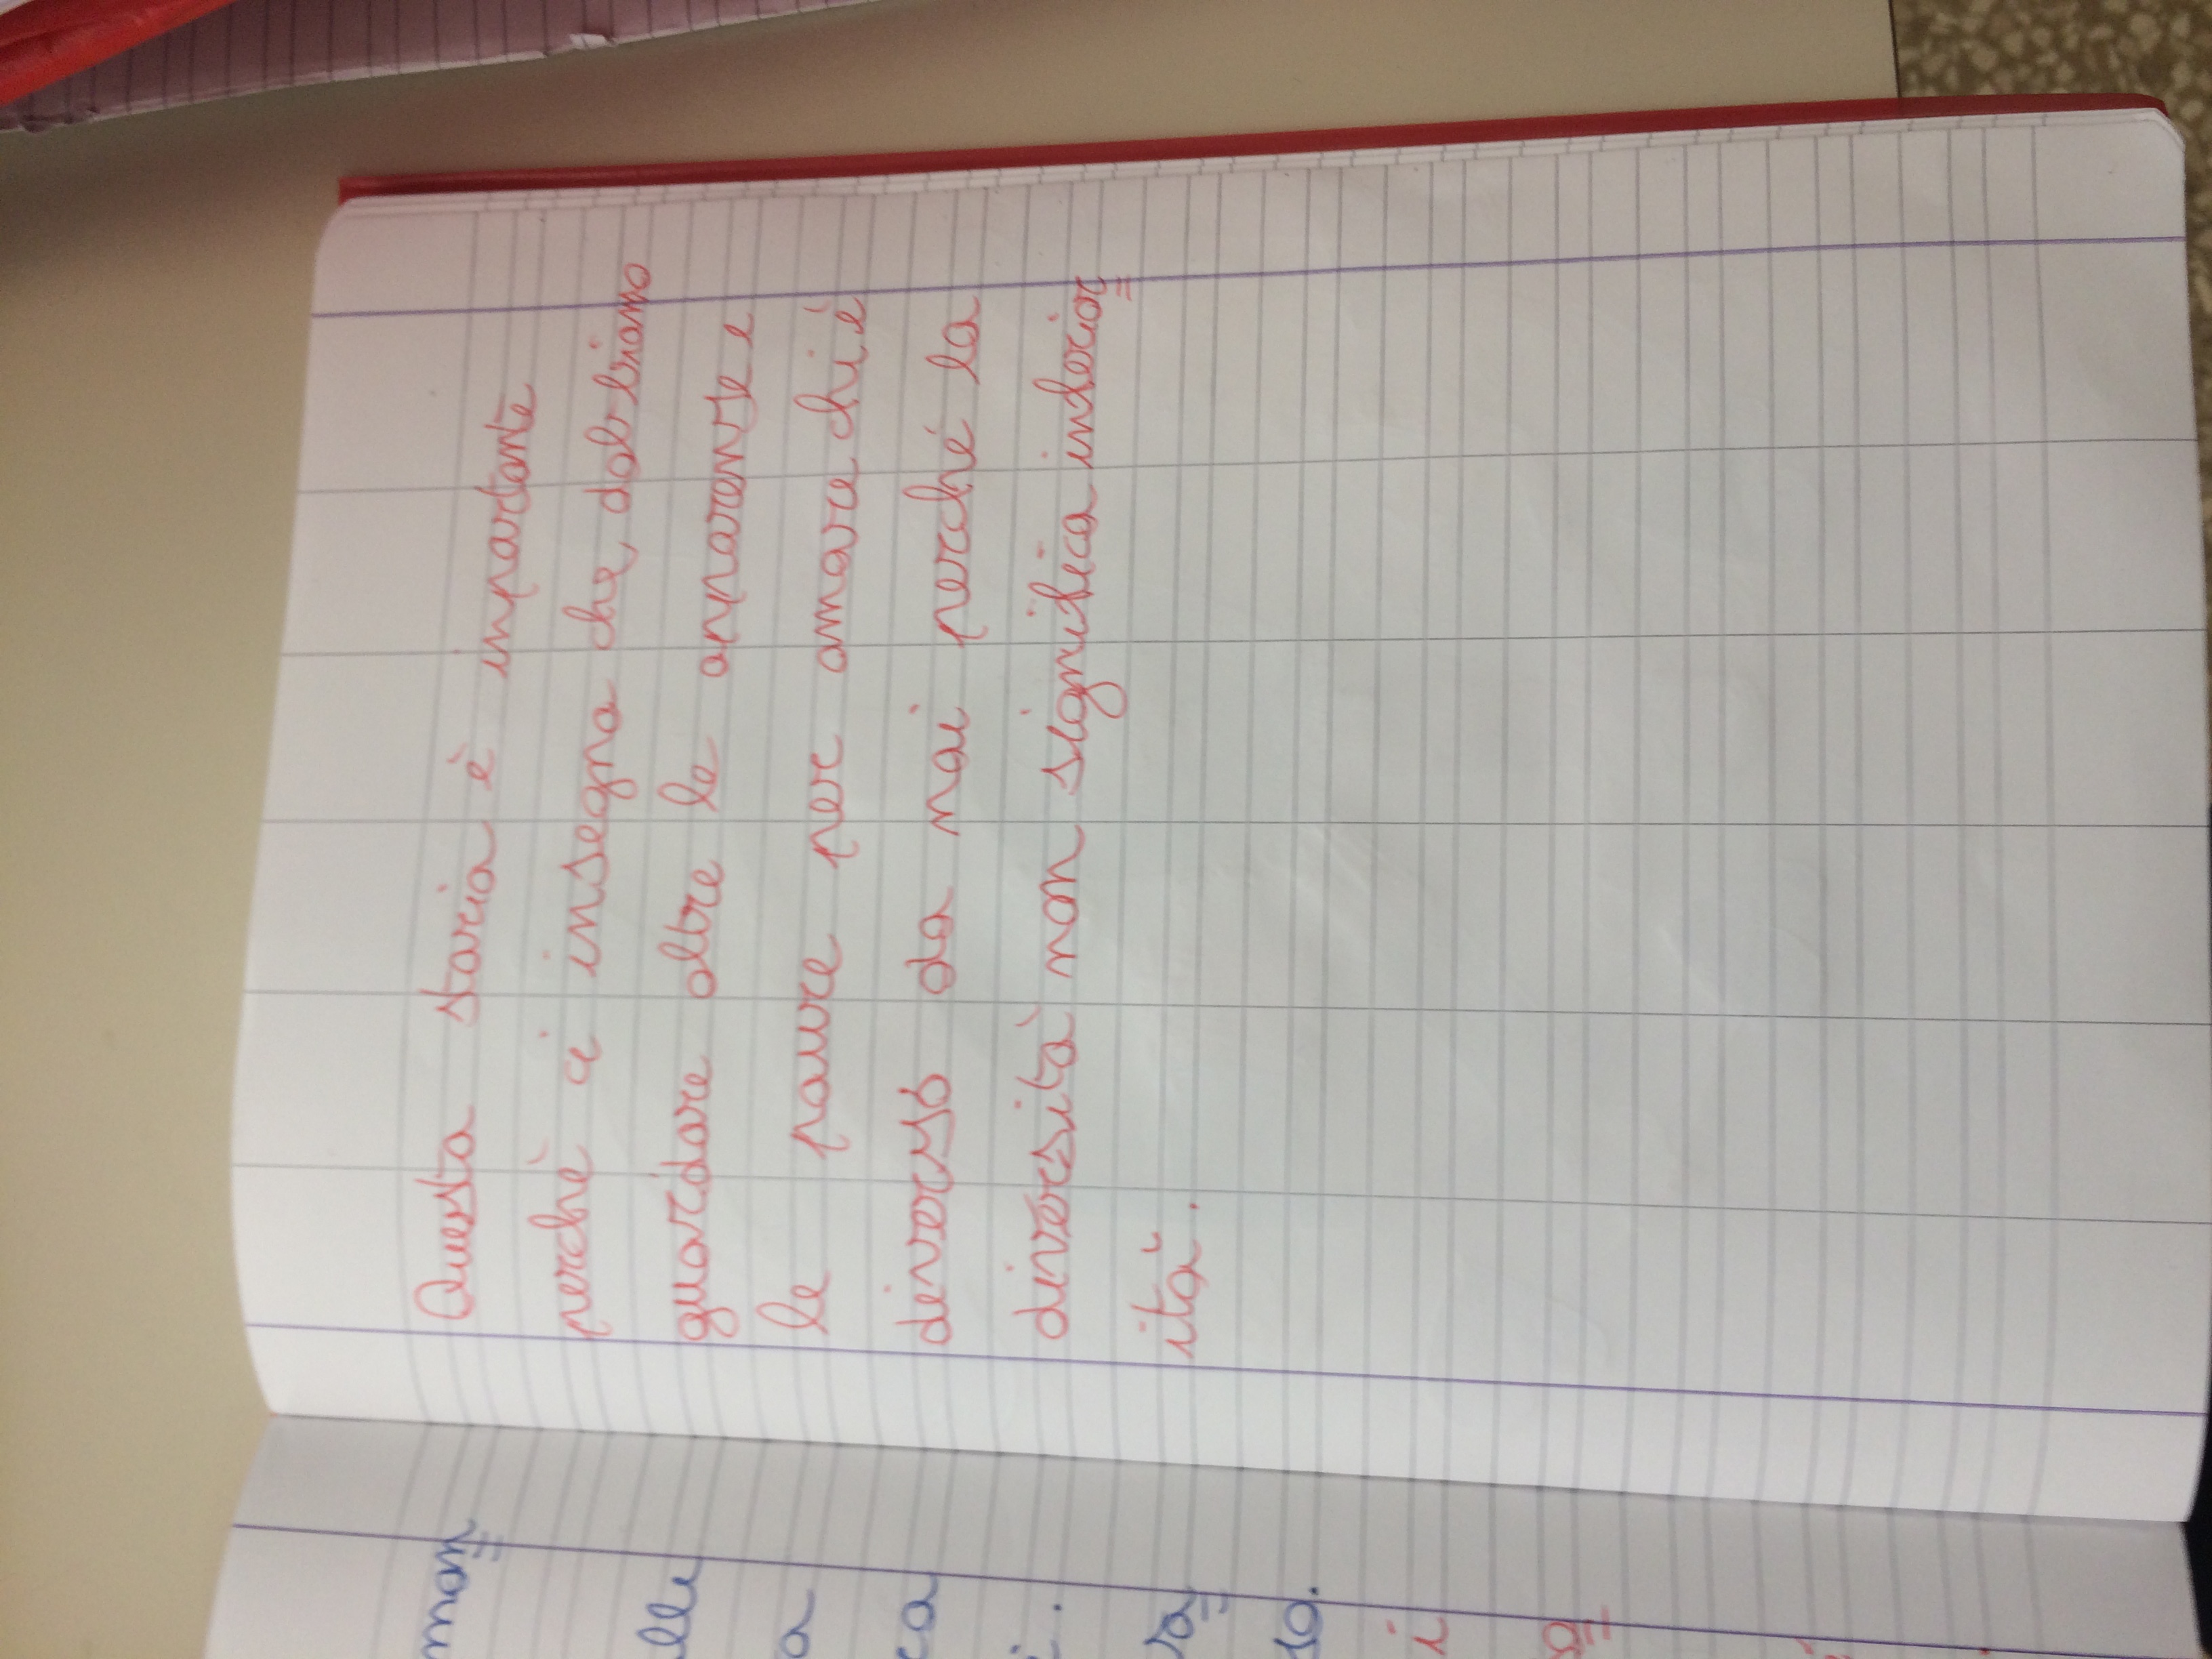 Questa storia è importante
perchè ci insegna che dobbiamo
guardare oltre le apparenze e
le paure per amare chi è
diverso da noi perché la
diversità non significa inferior
ità.
mon
elle
a
ca
i.
ra
so.
i